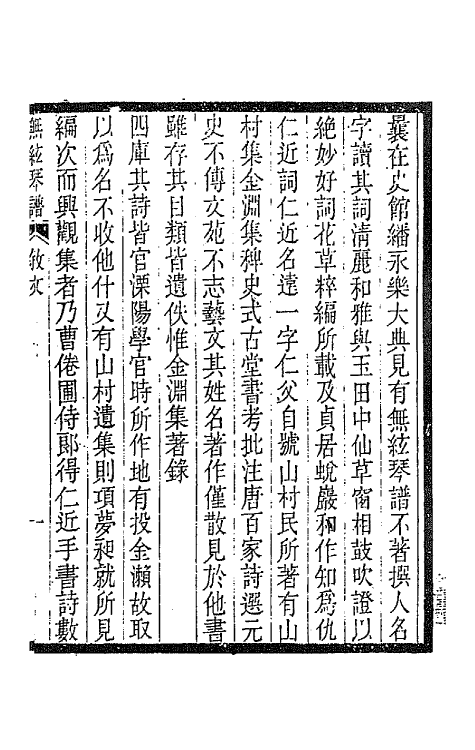 曩在史館繙永樂大典見有無絃琴譜不著撰人名
字讀其詞清麗和雅與玉田中仙草窗相鼓吹證以
絕妙好詞花草粹編所載及貞居蛻巖和作知爲仇
仁近詞仁近名遠一字仁父自號山村民所著有山
村集金淵集稗史式古堂書考批注唐百家詩選元
史不傳文苑不志藝文其姓名著作僅散見於他書
雖存其目類皆遺佚惟金淵集著錄
四庫其詩皆官溧陽學官時所作地有投金瀨故取
以爲名不收他什又有山村遺集則項夢昶就所見
編次而興觀集者乃曹倦圃侍郞得仁近手書詩數
無絃琴譜 敘文 一